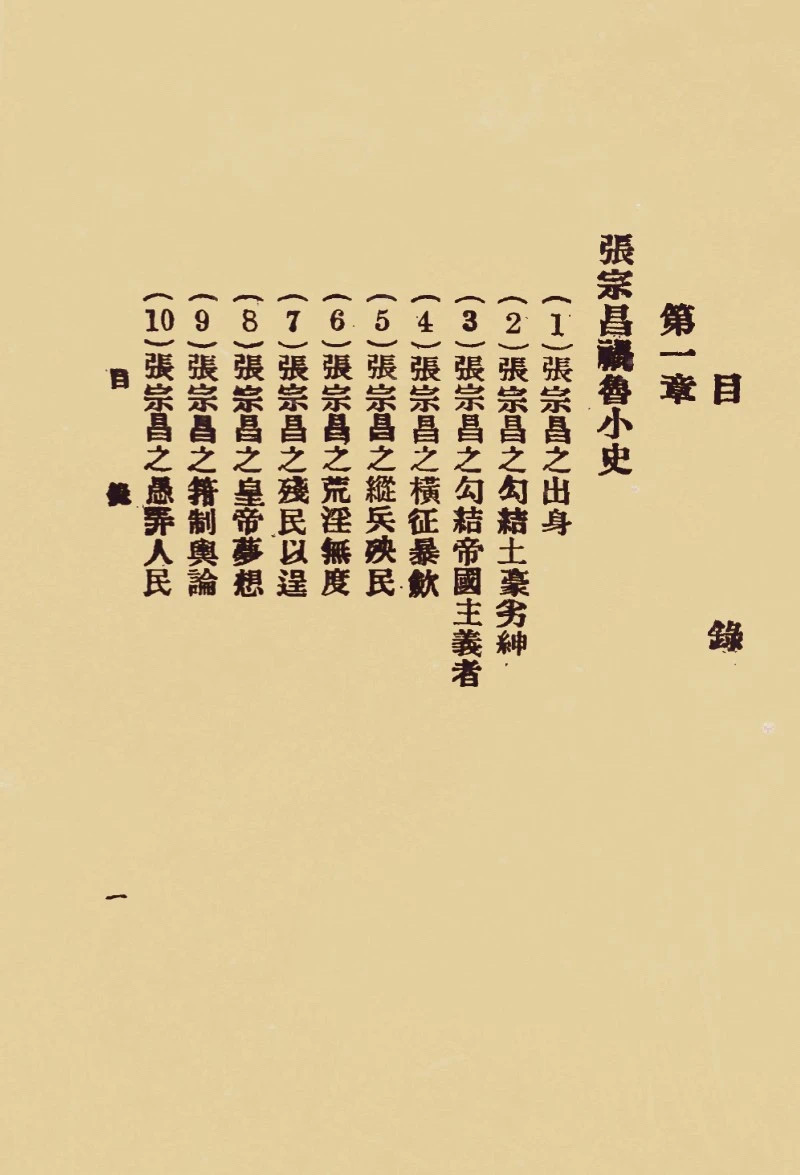 目錄
第一章
張宗昌禍魯小史
(1)張宗昌之出身
(2)張宗昌之勾結土豪劣紳
(3)張宗昌之勾結帝國主義者
(4)張宗昌之橫征暴歛
(5)張宗昌之縱兵殃民
(6)張宗昌之荒淫無度
(7)張宗昌之殘民以逞
(8)張宗昌之皇帝夢想
(9)張宗昌之箝制輿論
(10)張宗昌之愚弄人民
目錄
一